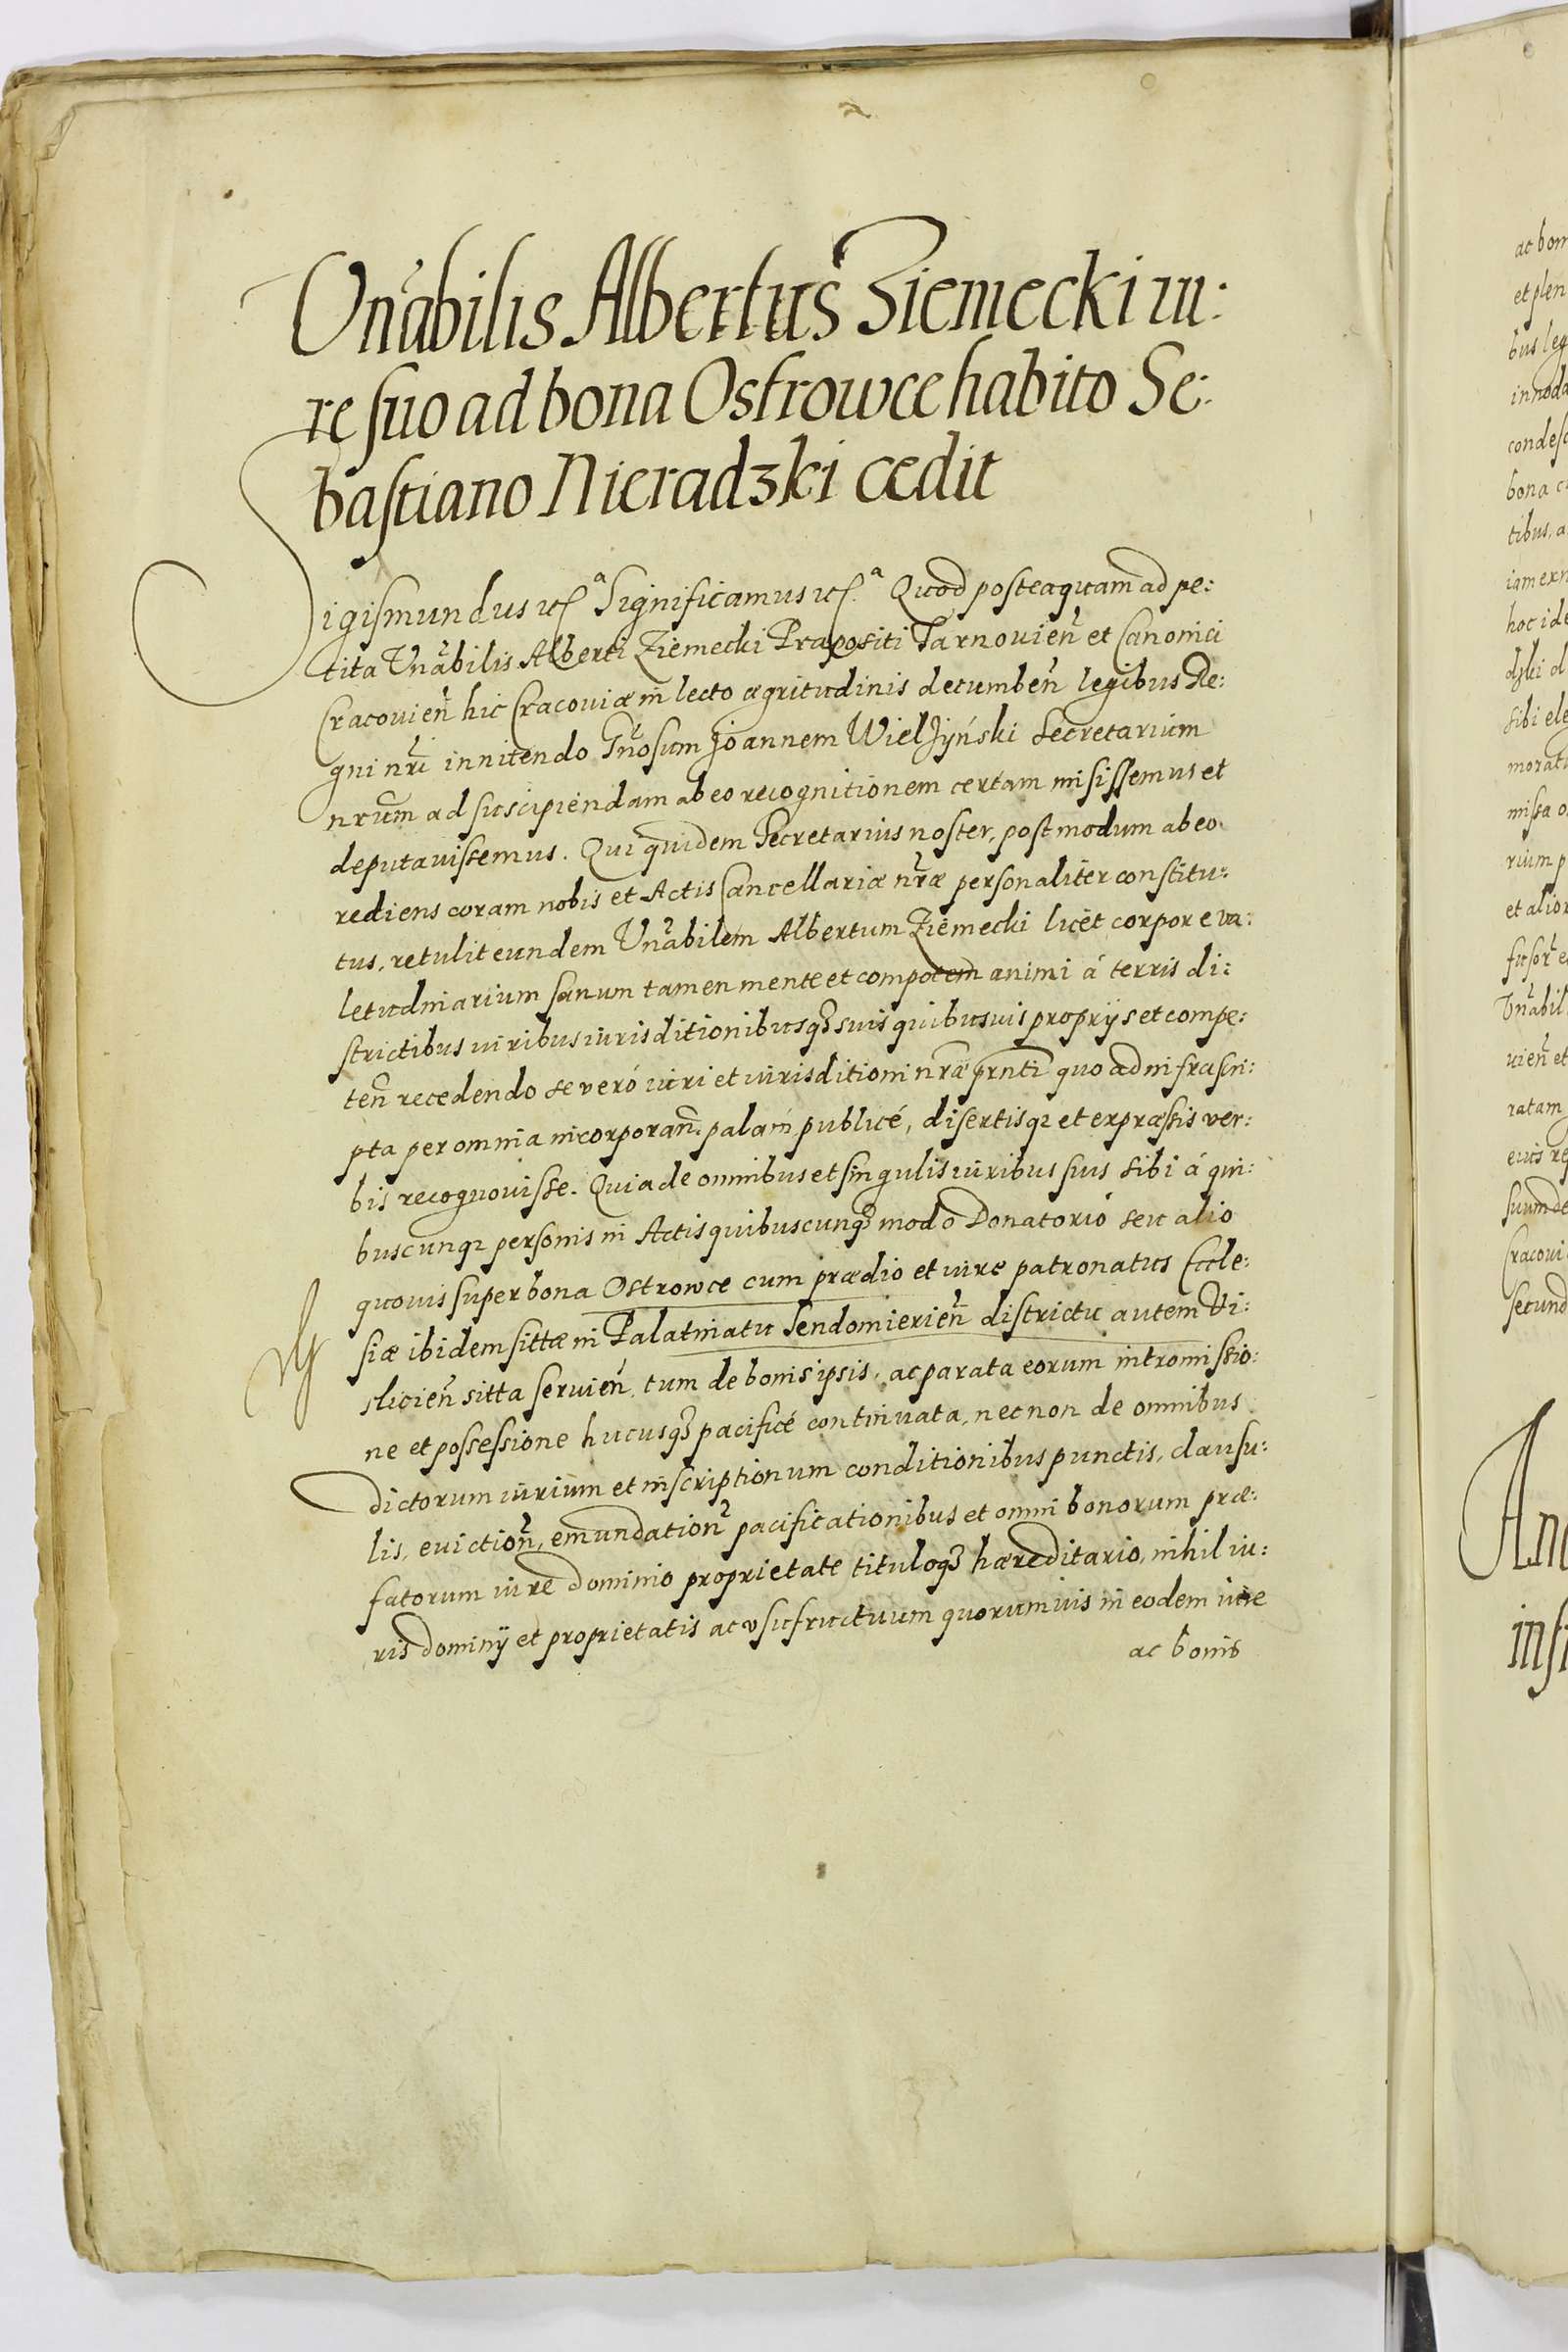 Vnabilis Albertus Ziemecki iu:
re suo ad bona Ostrowce habito Se:
bastiano Nieradzki cedit
Sigismundus etc. Significamus etc. Quod posteaquam ad pe:
tita Vnabilis Alberti Ziemecki Præpositi Tarnouien̄ et Canonici
Cracouien̄ hic Cracouiæ in lecto ægritudinis decumben̄ legibus Re:
gni nr̄i innitendo Gn̄osum Joannem Wielżyński Secretarium
nrūm ad suscipiendam ab eo recognitionem certam misissemus et
deputauissemus. Qui quidem Secretarius noster, postmodum ab eo
rediens coram nobis et Actis Cancellariæ nr̄æ personaliter constitu:
tus, retulit eundem Vnabilem Albertum Ziemecki licèt corpore va:
letudinarium sanum tamen mente et compotem animi á terris di:
strictibus iuribus iurisditionibusq; suis quibusuis proprijs et compe:
ten̄ recedendo se veró iuri et iurisditioni nr̄æ prn̄ti quo ad infrascri:
pta per omnia incorporan̄. palam publicé, disertisq; et expræssis ver:
bis recognouisse. Quia de omnibus et singulis iuribus suis sibi á qui:
buscunq; personis in Actis quibuscunq; modo Donatorio seu alio
quouis super bona Ostrowce cum prædio et iure patronatus Eccle:
siæ ibidem sittæ in Palatinatu Sendomierien̄ districtu autem Vi:
slicien̄ sitta seruien̄, tum de bonis ipsis, ac parata eorum intromissio:
ne et possessione hucusq; pacificé continuata, necnon de omnibus
dictorum iurium et inscriptionum conditionibus punctis, clausu:
lis, euiction̄, emundation̄ pacificationibus et omni bonorum præ:
fatorum iure dominio proprietate tituloq; hæreditario, nihil iu:
ris dominij et proprietatis ac vsufructuum quorumuis in eodem iure
ac bonis
ac bon
et plen
bus leg
innoda
condesc
bona
tibus, a
iam ex
hoc ide
dzki d
sibi ele
morat
missa o
rium p
et alior
Vnabil
uien̄ et
ratam
eius re
suum de
Cracoui
secund
An
inf